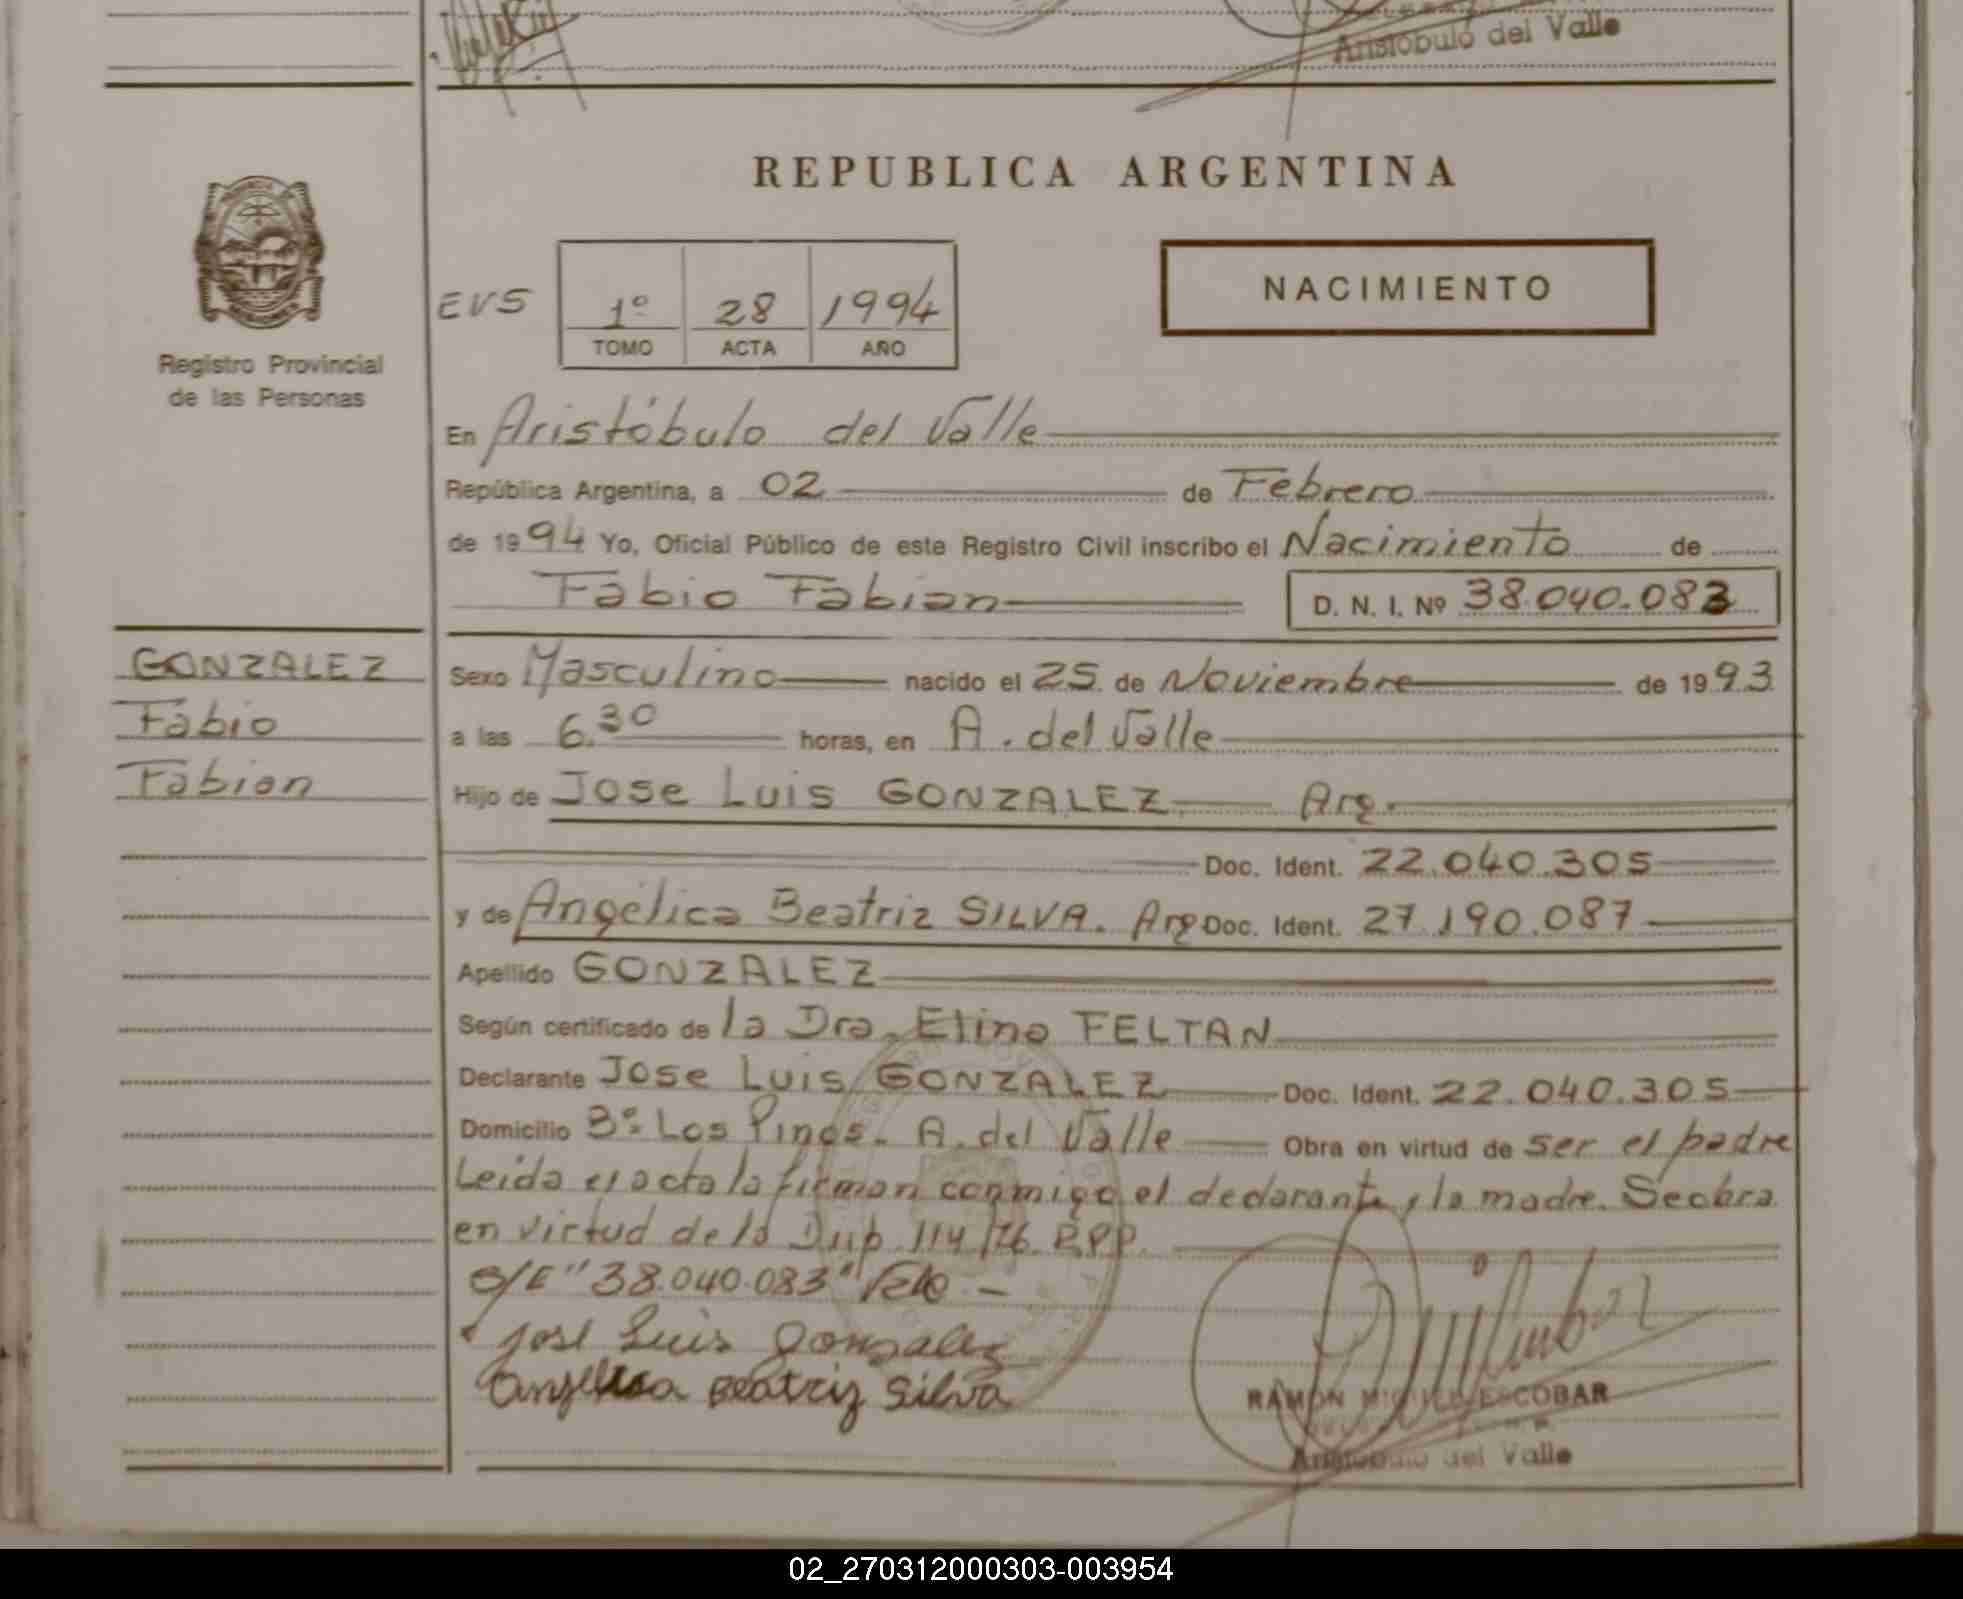 Aristóbulo del Valle
REPUBLICA ARGENTINA
EVS
1º 28 1994
TOMO ACTA AÑO
NACIMIENTO
Registro Provincial
de las Personas
En Aristóbulo del Valle
República Argentina, a 02 de Febrero
de 1994 Yo, Oficial Público de este Registro Civil inscribo el Nacimiento de
Fabio Fabian D. N. I. Nº 38.040.083
GONZALEZ
Fabio
Fabian
Sexo Masculino nacido el 25 de Noviembre de 1993
a las 6.30 horas, en A. del Valle
Hijo de Jose Luis GONZALEZ Arg.
Doc. Ident. 22.040.305
y de Angélica Beatriz SILVA. Arg Doc. Ident. 27.190.087
Apellido GONZALEZ
Según certificado de la Dra. Elina FELTAN
Declarante Jose Luis GONZALEZ Doc. Ident. 22.040.305
Domicilio Bº Los Pinos. A. del Valle Obra en virtud de ser el padre
Leida el acta la firman conmigo el declarante y la madre. Se obra
en virtud de la Disp. 114/76 R.P.P.
S/E "38.040.083" Vale.-
José Luis Gonzalez
Angelica Beatriz Silva
RAMON MIGUEL ESCOBAR
Aristóbulo del Valle
02_270312000303-003954